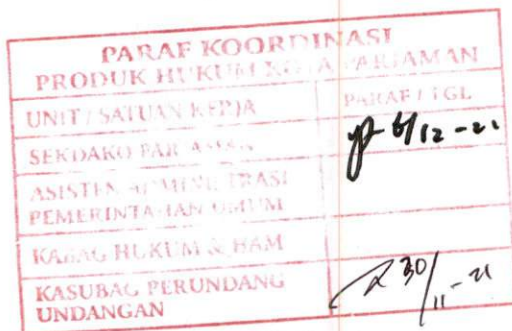 PARAF KOORDINASI
PRODUK HUKUM KOTA PARIAMAN
UNIT / SATUAN KERJA PARAF / TGL
SEKDAKO PARIAMAN 6/12-21
ASISTEN ADMINISTRASI
PEMERINTAHAN UMUM
KABAG HUKUM & HAM
KASUBAG PERUNDANG
UNDANGAN 30/11-21